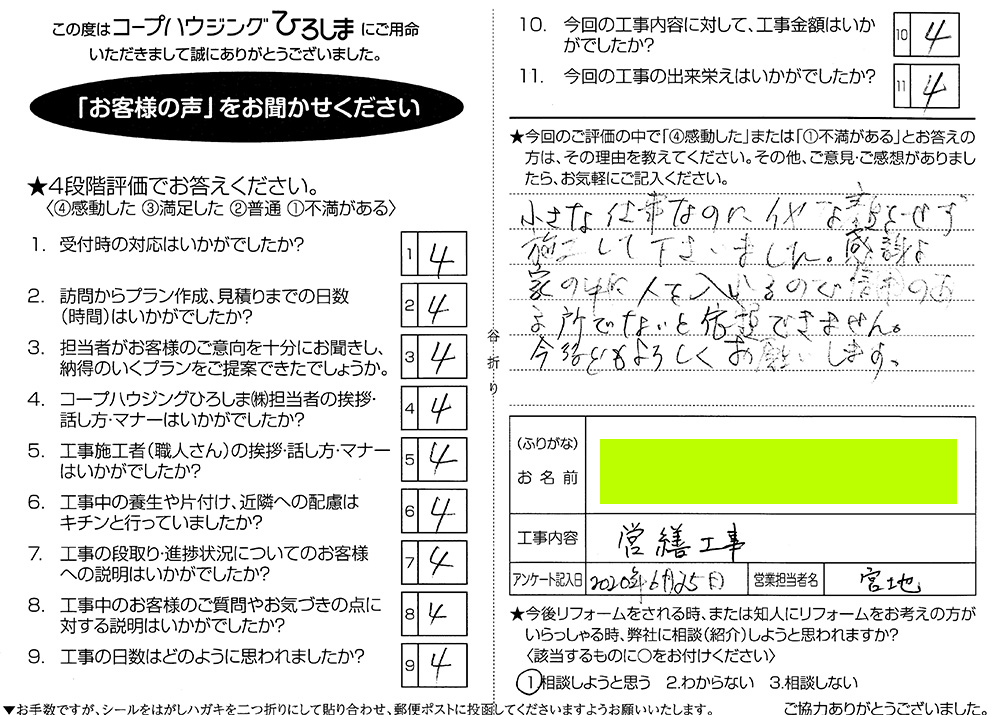 この度はコープハウジングひろしまにご用命
いただきまして誠にありがとうございました。
「お客様の声」をお聞かせください
★4段階評価でお答えください。
〈④感動した ③満足した ②普通 ①不満がある〉
1. 受付時の対応はいかがでしたか? 1 4
2. 訪問からプラン作成、見積りまでの日数
(時間)はいかがでしたか? 2 4
3. 担当者がお客様のご意向を十分にお聞きし、
納得のいくプランをご提案できたでしょうか。 3 4
4. コープハウジングひろしま㈱担当者の挨拶・
話し方・マナーはいかがでしたか? 4 4
5. 工事施工者(職人さん)の挨拶・話し方・マナー
はいかがでしたか? 5 4
6. 工事中の養生や片付け、近隣への配慮は
キチンと行っていましたか? 6 4
7. 工事の段取り・進捗状況についてのお客様
への説明はいかがでしたか? 7 4
8. 工事中のお客様のご質問やお気づきの点に
対する説明はいかがでしたか? 8 4
9. 工事の日数はどのように思われましたか? 9 4
▼お手数ですが、シールをはがしハガキを二つ折りにして貼り合わせ、郵便ポストに投函してくださいますようお願いいたします。
谷折り
10. 今回の工事内容に対して、工事金額はいか
がでしたか? 10 4
11. 今回の工事の出来栄えはいかがでしたか? 11 4
★今回のご評価の中で「④感動した」または「①不満がある」とお答えの
方は、その理由を教えてください。その他、ご意見・ご感想がありまし
たら、お気軽にご記入ください。
小さな仕事なのにイヤな顔とせず
施工して下さいました。感謝よ
家の中に人を入れるので信用のあ
る所でないと依頼できません。
今後ともよろしくお願いします。
(ふりがな)
お名前
工事内容 営繕工事
アンケート記入日 2020年6月25日 営業担当者名 宮地
★今後リフォームをされる時、または知人にリフォームをお考えの方が
いらっしゃる時、弊社に相談(紹介)しようと思われますか?
〈該当するものに○をお付けください〉
1.相談しようと思う 2.わからない 3.相談しない
ご協力ありがとうございました。